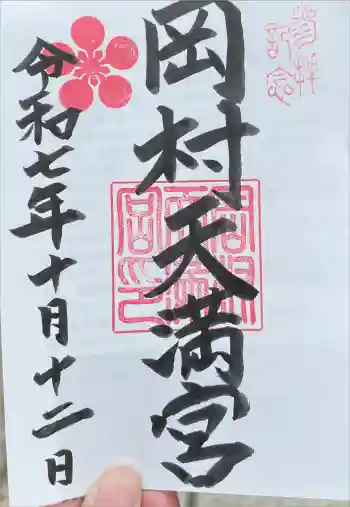 参拝
記念
岡村天満宮
令和七年十月十二日